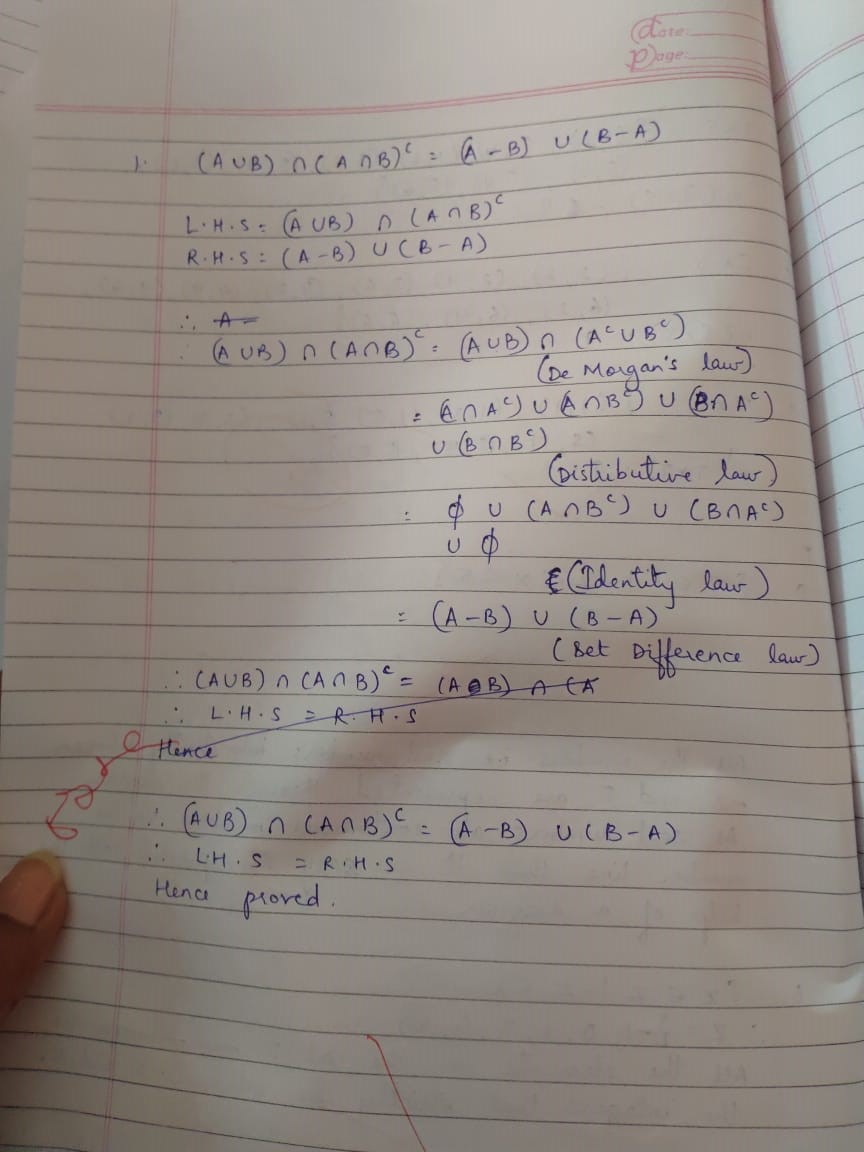 Date:
Page:
1. (A ∪ B) ∩ (A ∩ B)ᶜ = (A - B) ∪ (B - A)
L.H.S = (A ∪ B) ∩ (A ∩ B)ᶜ
R.H.S = (A - B) ∪ (B - A)
∴ A =
∴ (A ∪ B) ∩ (A ∩ B)ᶜ = (A ∪ B) ∩ (Aᶜ ∪ Bᶜ)
(De Morgan's law)
= (A ∩ Aᶜ) ∪ (A ∩ Bᶜ) ∪ (B ∩ Aᶜ)
∪ (B ∩ Bᶜ)
(Distributive law)
= ϕ ∪ (A ∩ Bᶜ) ∪ (B ∩ Aᶜ)
∪ ϕ
(Identity law)
= (A - B) ∪ (B - A)
(Set Difference law)
∴ (A ∪ B) ∩ (A ∩ B)ᶜ = (A B) ∩ (A
∴ L.H.S = R.H.S
Hence
∴ (A ∪ B) ∩ (A ∩ B)ᶜ = (A - B) ∪ (B - A)
∴ L.H.S = R.H.S
Hence proved.